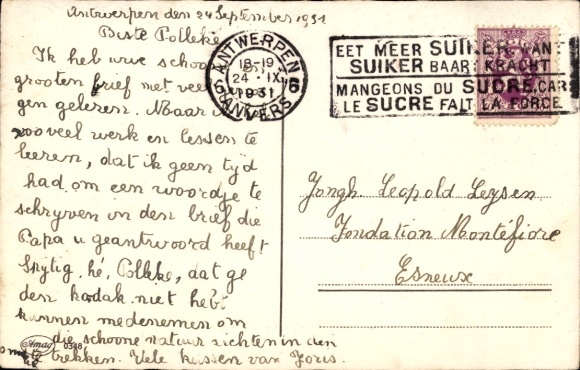 Antwerpen den 24 September 1931
Beste Polleke
Ik heb uwe schoo
grooten brief met veel
gen gelezen. Maar
zooveel werk en lessen te
leeren, dat ik geen tijd
had om een woordje te
schryven in den brief die
Papa u geantwoord heeft
Spytig, hé, Polleke, dat ge
den kodak niet hebt
kunnen medenemen om
die schoone natuur zichten in den
te trekken. Vele kussen van Joris.
Amag
0348
ANTWERPEN
18-19
24 IX
1931
6 6
ANVERS
EET MEER SUIKER WANT
SUIKER BAART KRACHT
MANGEONS DU SUCRE, CAR
LE SUCRE FAIT LA FORCE
Jongh. Leopold Leysen
Fondation Montéfiore
Esneux